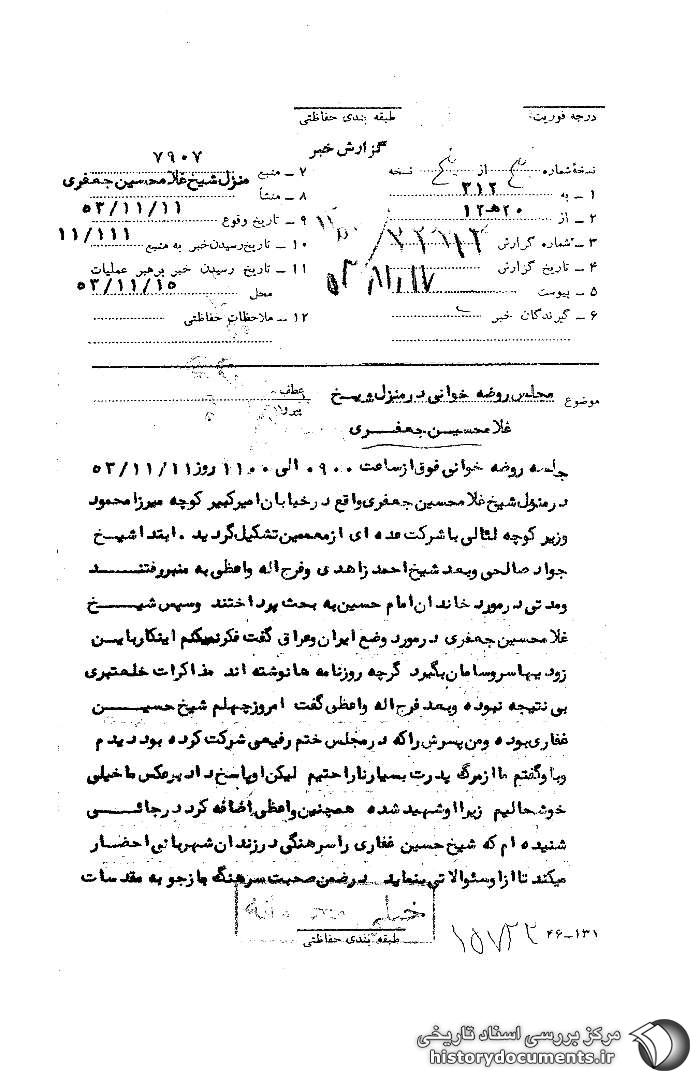 درجه فوریت:
طبقه بندی حفاظتی
گزارش خبر
نسخه شماره پنج از پنج نسخه
۱ ـ به ۳۱۲
۲ ـ از ۲۰هـ۱۲
۳ ـ شماره گزارش
۴ ـ تاریخ گزارش ۵۳/۱۱/۱۷
۵ ـ پیوست
۶ ـ گیرندگان خبر
۷ ـ منبع ۷۹۰۷
۸ ـ منشأ منزل شیخ غلامحسین جعفری
۹ ـ تاریخ وقوع ۵۳/۱۱/۱۱
۱۰ ـ تاریخ رسیدن خبر به منبع ۱۱/۱۱۱
۱۱ ـ تاریخ رسیدن خبر برهبر عملیات
محل ۵۳/۱۱/۱۵
۱۲ ـ ملاحظات حفاظتی
موضوع مجلس روضه خوانی در منزل شیخ
غلامحسین جعفری
عطف
پیرو
جلسه روضه خوانی فوق از ساعت ۰۹۰۰ الی ۱۱۰۰ روز ۵۳/۱۱/۱۱
در منزل شیخ غلامحسین جعفری واقع در خیابان امیرکبیر کوچه میرزا محمود
وزیر کوچه لئالی با شرکت عده ای از معممین تشکیل گردید . ابتدا شیخ
جواد صالحی و بعد شیخ احمد زاهدی و فرج اله واعظی به منبر رفتند
و مدتی در مورد خاندان امام حسین به بحث پرداختند و سپس شیخ
غلامحسین جعفری در مورد وضع ایران و عراق گفت فکر نمیکنم اینکار باین
زودیها سر و سامان بگیرد گرچه روزنامه ها نوشته اند مذاکرات خلعتبری
بی نتیجه نبوده و بعد فرج اله واعظی گفت امروز چهلم شیخ حسین
غفاری بوده و من پسرش را که در مجلس ختم رفیعی شرکت کرده بود دیدم
و باو گفتم ما از مرگ پدرت بسیار ناراحتیم لیکن او پاسخ داد برعکس ما خیلی
خوشحالیم زیرا او شهید شده همچنین واعظی اضافه کرد در جائی
شنیده ام که شیخ حسین غفاری را سرهنگی در زندان شهربانی احضار
میکند تا از او سئوالاتی بنماید در ضمن صحبت سرهنگ بازجو به مقدسات
خیلی محرمانه
طبقه بندی حفاظتی
۴۶-۱۳۱
۱۵۷۲۲
مرکز بررسی اسناد تاریخی
historydocuments.ir